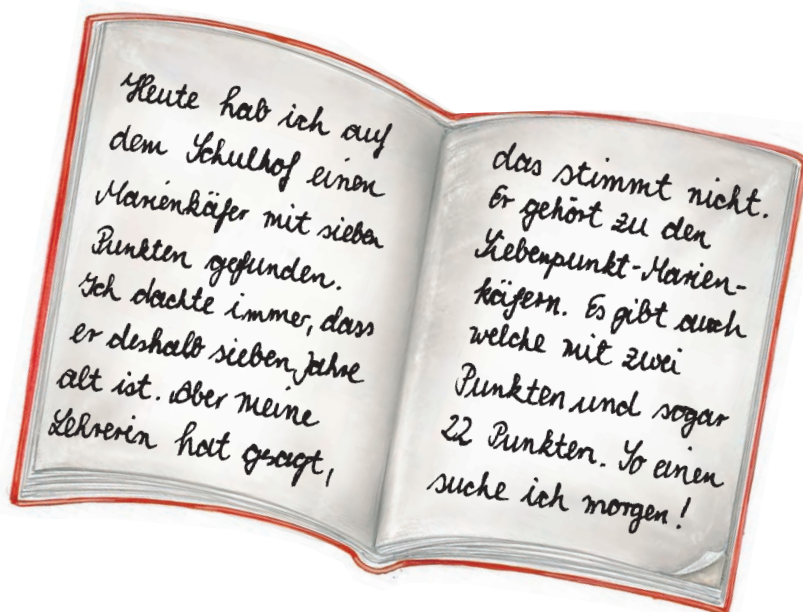 Heute hab ich auf
dem Schulhof einen
Marienkäfer mit sieben
Punkten gefunden.
Ich dachte immer, dass
er deshalb sieben Jahre
alt ist. Aber meine
Lehrerin hat gesagt,
das stimmt nicht.
Er gehört zu den
Siebenpunkt-Marien-
käfern. Es gibt auch
welche mit zwei
Punkten und sogar
22 Punkten. So einen
suche ich morgen!